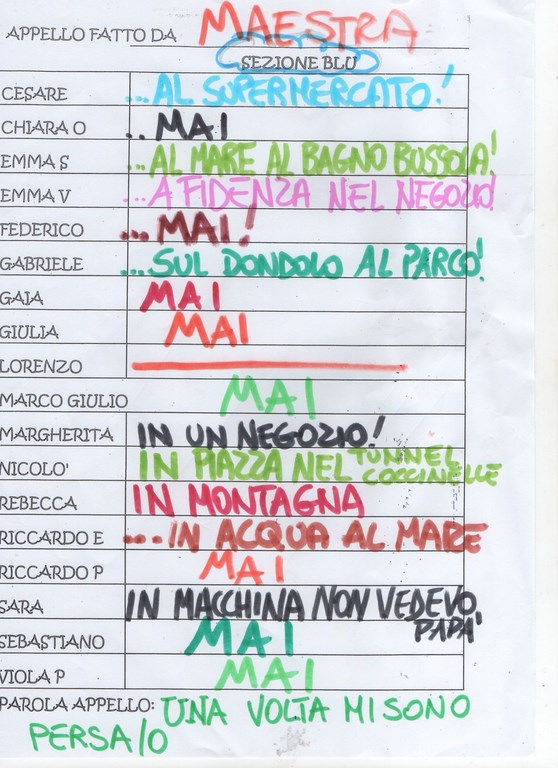 APPELLO FATTO DA MAESTRA
SEZIONE BLU
CESARE ...AL SUPERMERCATO!
CHIARA O ..MAI
EMMA S ...AL MARE AL BAGNO BUSSOLA!
EMMA V ...A FIDENZA NEL NEGOZIO!
FEDERICO ...MAI!
GABRIELE ...SUL DONDOLO AL PARCO!
GAIA MAI
GIULIA MAI
LORENZO
MARCO GIULIO MAI
MARGHERITA IN UN NEGOZIO!
NICOLO' IN PIAZZA NEL TUNNEL
COCCINELLE
REBECCA IN MONTAGNA
RICCARDO E ...IN ACQUA AL MARE
RICCARDO P MAI
SARA IN MACCHINA NON VEDEVO
PAPA'
SEBASTIANO MAI
VIOLA P MAI
PAROLA APPELLO: UNA VOLTA MI SONO
PERSA/O